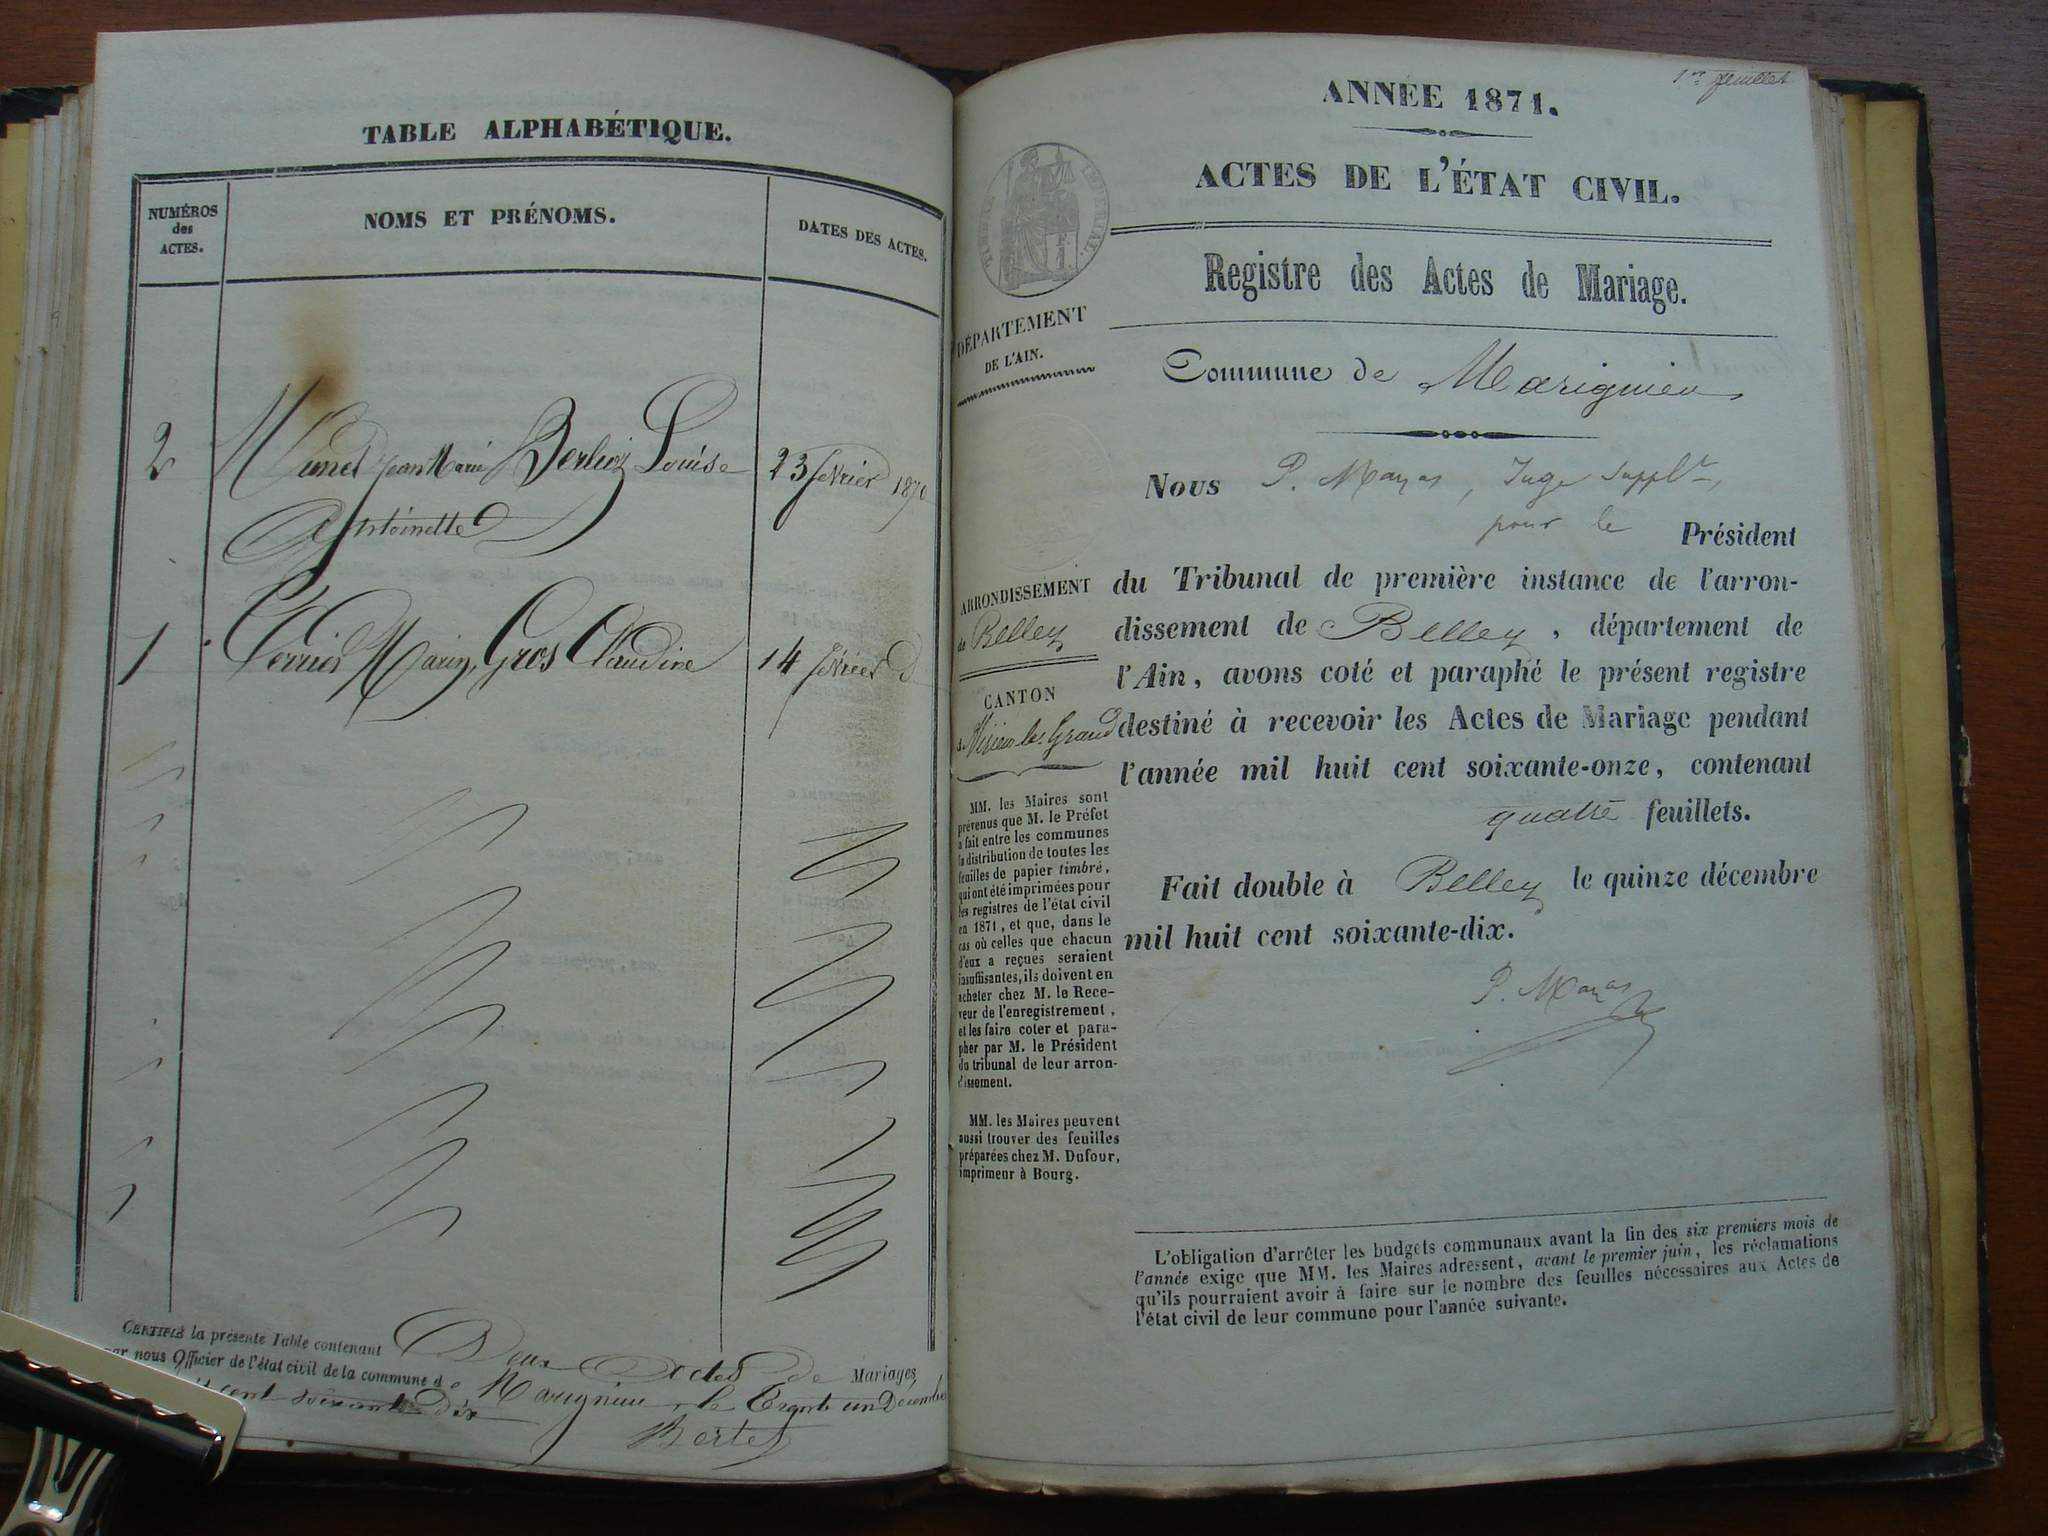 TABLE ALPHABÉTIQUE.
NUMÉROS
des
ACTES.
NOMS ET PRÉNOMS.
DATES DES ACTES.
2 Jean Marie Berlioz Louise 23 février 1870
Antoinette
1 Perrier Marin, Gros Claudine 14 février d
CERTIFIÉ la présente Table contenant Deux Actes de Mariages,
par nous Officier de l'état civil de la commune de Marignieu, le Trente un Décembre
cent soixante dix
Bertet
1er feuillet
ANNÉE 1871.
ACTES DE L'ÉTAT CIVIL.
TIMBRE IMPÉRIAL
Registre des Actes de Mariage.
DÉPARTEMENT
DE L'AIN.
Commune de Marignieu
Nous P. Mayas, Juge Supplt,
pour le Président
du Tribunal de première instance de l'arron-
dissement de Belley, département de
l'Ain, avons coté et paraphé le présent registre
destiné à recevoir les Actes de Mariage pendant
l'année mil huit cent soixante-onze, contenant
quatre feuillets.
Fait double à Belley le quinze décembre
mil huit cent soixante-dix.
P. Mayas
ARRONDISSEMENT
de Belley
CANTON
de Virieu-le-Grand
MM. les Maires sont
prévenus que M. le Préfet
a fait entre les communes
la distribution de toutes les
feuilles de papier timbré,
qui ont été imprimées pour
les registres de l'état civil
en 1871, et que, dans le
cas où celles que chacun
d'eux a reçues seraient
insuffisantes, ils doivent en
acheter chez M. le Rece-
veur de l'enregistrement,
et les faire coter et para-
pher par M. le Président
du tribunal de leur arron-
dissement.
MM. les Maires peuvent
aussi trouver des feuilles
préparées chez M. Dufour,
imprimeur à Bourg.
L'obligation d'arrêter les budgets communaux avant la fin des six premiers mois de
l'année exige que MM. les Maires adressent, avant le premier juin, les réclamations
qu'ils pourraient avoir à faire sur le nombre des feuilles nécessaires aux Actes de
l'état civil de leur commune pour l'année suivante.